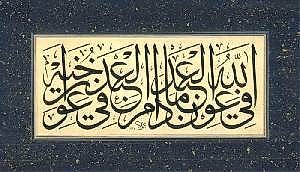 الله في عون العبد مادام العبد في عون أخيه